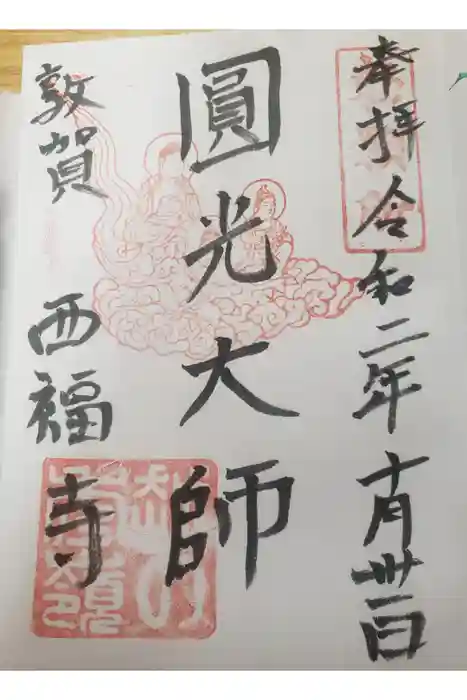 奉拝 令和二年 十月卅一日
圓光大師
敦賀 西福寺